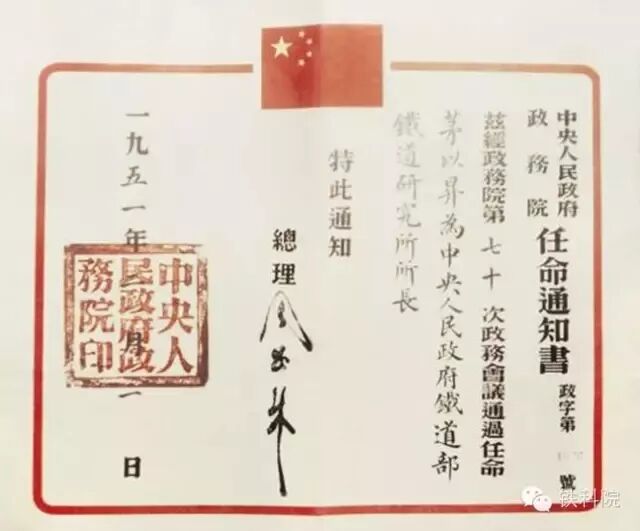 中央人民政府
政務院
任命通知書
政字第 號
茲經政務院第七十次政務會議通過任命
茅以昇為中央人民政府鐵道部
鐵道研究所所長
特此通知
總理 周恩來
一九五一年 月一日
中央人
民政府政
務院印
铁科院